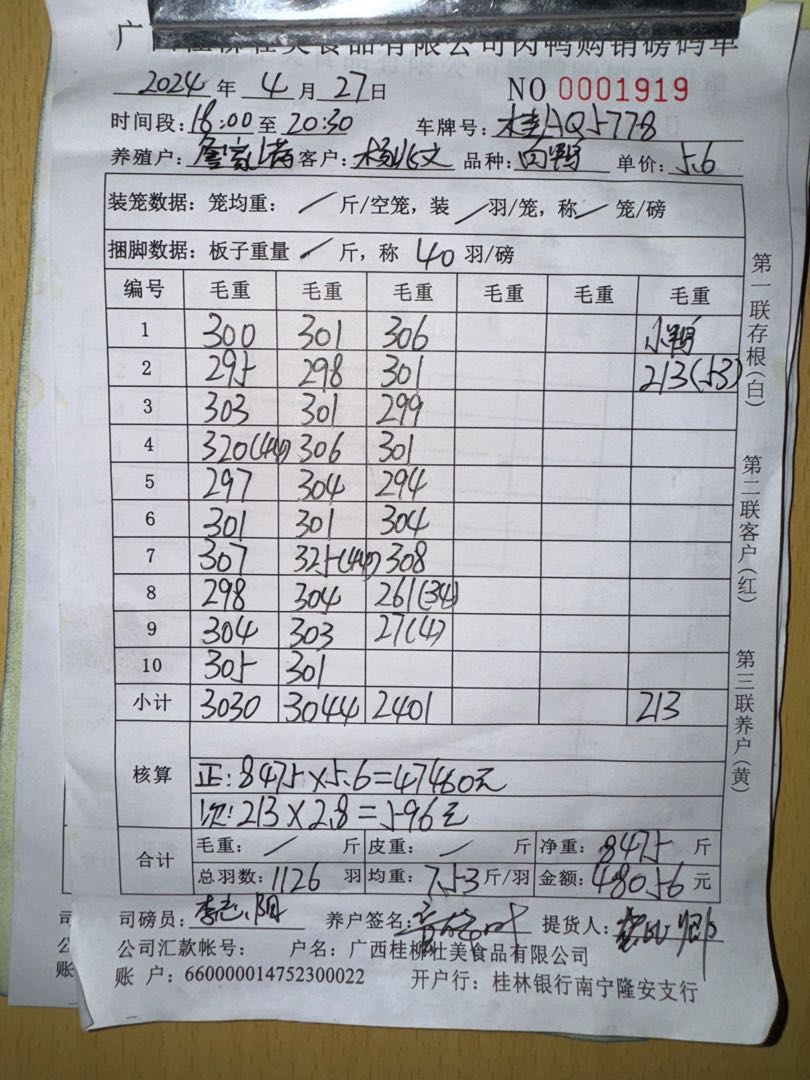 广西桂柳壮美食品有限公司肉鸭购销磅码单
2024年4月27日 NO 0001919
时间段:18:00至20:30 车牌号:桂AQ5778
养殖户: 客户:杨 文 品种:肉鸭 单价:5.6
装笼数据:笼均重:/斤/空笼,装/羽/笼,称/笼/磅
捆脚数据:板子重量/斤,称40羽/磅
编号 毛重 毛重 毛重 毛重 毛重 毛重
1 300 301 306 小鸭
2 295 298 301 213(53)
3 303 301 299
4 320(44) 306 301
5 297 304 294
6 301 301 304
7 307 325(44) 308
8 298 304 261(34)
9 304 303 27(4)
10 305 301
小计 3030 3044 2401 213
核算
正:8475×5.6=47460元
次:213×2.8=596元
合计
毛重:/斤 皮重:/斤 净重:8475斤
总羽数:1126羽 均重:7.53斤/羽 金额:48056元
司磅员:李志阳 养户签名: 提货人:
公司汇款帐号: 户名:广西桂柳壮美食品有限公司
账 户:660000014752300022 开户行:桂林银行南宁隆安支行
第一联存根(白)
第二联客户(红)
第三联养户(黄)
司
公
账